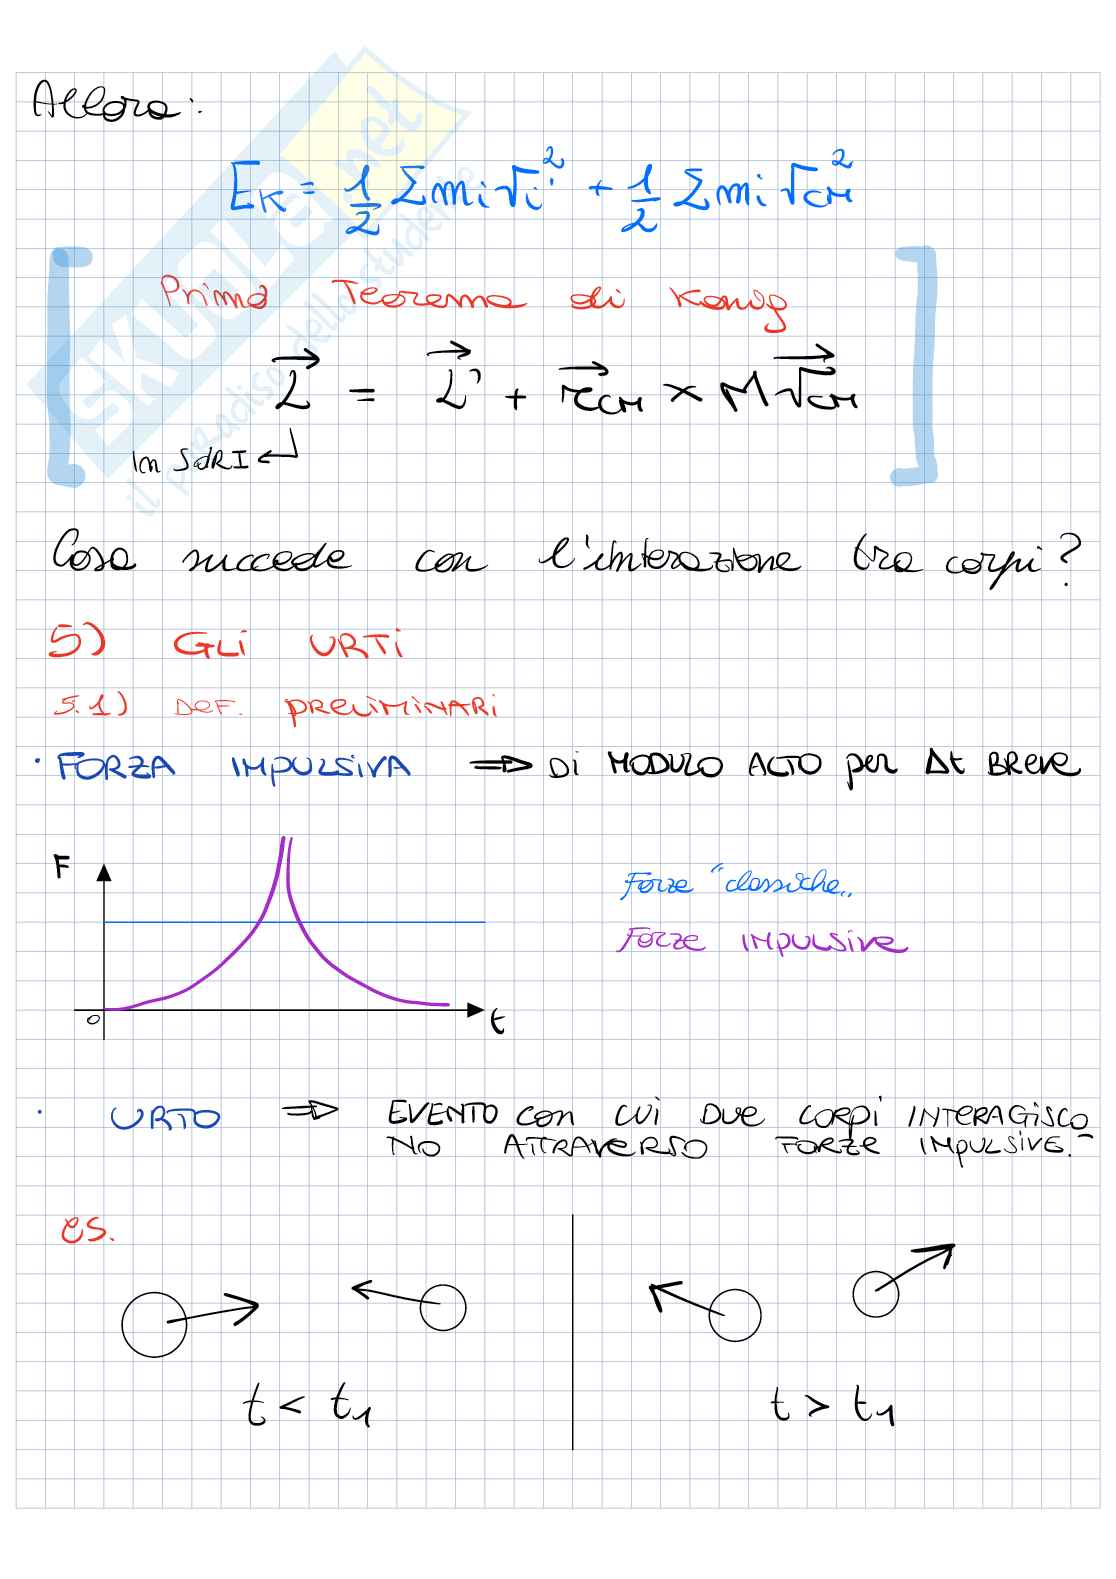 Allora:
E_K = 1/2 Σ m_i v_i'^2 + 1/2 Σ m_i v_CM^2
Primo Teorema di Konig
L⃗ = L⃗' + r⃗_CM × M v⃗_CM
in SdRI
Cosa succede con l'interazione tra corpi?
5) GLI URTI
5.1) DEF. PRELIMINARI
· FORZA IMPULSIVA ⇒ DI MODULO ALTO per Δt BREVE
F
Forze "classiche"
Forze IMPULSIVE
0
t
· URTO ⇒ EVENTO CON CUI DUE CORPI INTERAGISCO-
NO ATTRAVERSO FORZE IMPULSIVE.
es.
t < t1
t > t1
SKUOLA.net
il paradiso dello studente